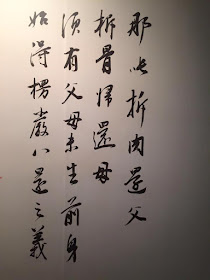 那吒析肉還父
析骨歸還母
須有父母未生前身
始得楞嚴八還之義